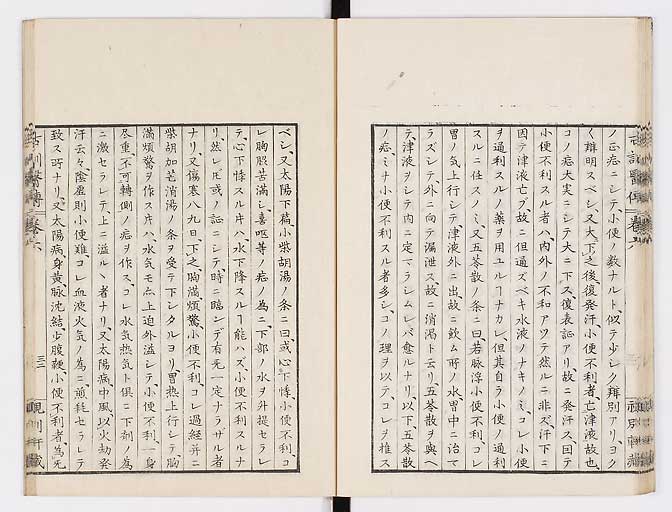 ノ正症ニシテ、小便ノ数ナルト、似テ少シク辨別アリ、ヨク
く辨明スベシ、又大下之後、復発汗、小便不利者、亡津液故也、
コノ症大実ニシテ大ニ下ス、復表証アリ、故ニ発汗ス、因テ
小便不利スル者ハ、内外ノ不和アツテ然ルニ非ズ、汗下ニ
因テ津液亡ブ、故ニ但通ズベキ水液ノナキノミ、コレ小便
ヲ通利スルノ薬ヲ用ユルコナカレ、但其自ラ小便ノ通利
スルニ任スノミ、又五苓散ノ条ニ曰、若脉浮小便不利、コレ
胃ノ気上行シテ、津液外ニ出、故ニ飲ム所ノ水胃中ニ治マ
ラズシテ、外ニ向テ漏泄ス、故ニ消渇ト云リ、五苓散ヲ與ヘ
テ、津液ヲシテ内ニ定マラシムレバ愈ルナリ、以下五苓散
ノ症ミナ小便不利スル者多シ、コノ理ヲ以テ、コレヲ推ス
ベシ、又太陽下篇、小柴胡湯ノ条ニ曰、或心下悸、小便不利、コ
レ胸脇苦満シ、喜嘔等ノ症ノ為ニ、下部ノ水ヲ升提セラレ
テ、心下悸スル片ハ、水下降スルヿ能ハズ、小便不利スルナ
リ、然レ𪜈或ノ証ニシテ、時ニ臨ンデ有无一定ナラザル者
ナリ、又傷寒八九日、下之、胸満煩驚、小便不利、コレ過経并ニ
柴胡加芒消湯ノ条ヲ受テ下シタルヨリ、胃熱上行シテ、胸
満煩驚ヲ作ス片ハ、水気モ亦上迫外溢シテ、小便不利、一身
尽重、不可轉側ノ症ヲ作ス、コレ水気熱気ト倶ニ下剤ノ為
ニ激セラレテ、上ニ溢ルヽ者ナリ、又太陽病、中風、以火劫発
汗云々、陰虚則小便難、コレ血液火気ノ為ニ、煎耗セラレテ
致ス所ナリ、又太陽病、身黄、脉沈結、少腹鞕、小便不利者、為无